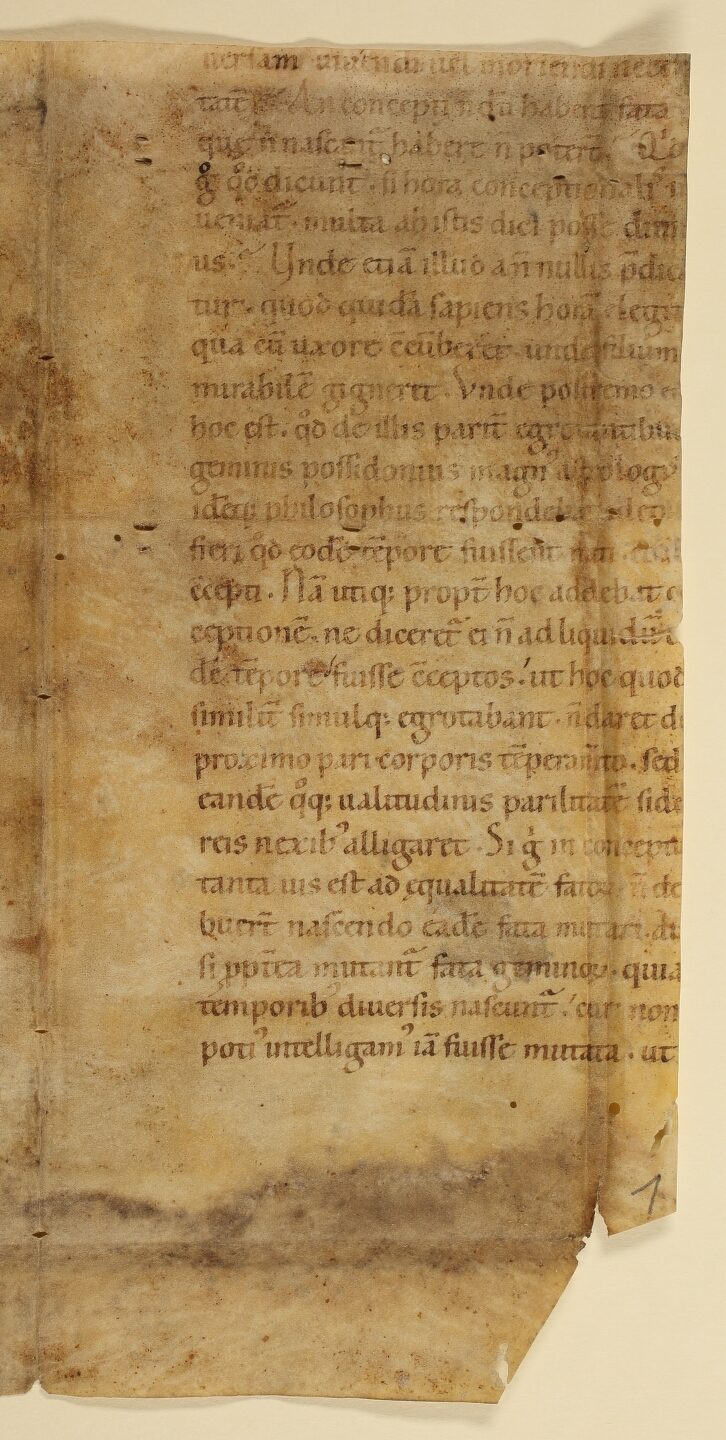 uersam uiuendi uel moriendi necessi
tatē. An concepti n̄dū habent fata
quę n̄ nascant̄ habere n̄ poterꝰ. 
g̊ qđ dicunt. si hora conceptionalis in
ueniat̄. multa ab istis dici posse diuini
us. Vnde etiā illud a n̄nullis p̄dica
tur. quod quidā sapiens horā elegit
qua cū uxore c̄cūberet. unde filium
mirabilē gigneret. Vnde postremo
hoc est. qđ de illis parit̄ egrotantibus
geminis possidonius magnꝰ astrologꝰ
idēq; philosophus respondebat. ideo
fieri qđ eodē tēpore fuissent nati eodē
c̄cepti. Nā utiq; propt̄ hoc addebat
ceptionē. ne diceret̄ ei n̄ ad liquidū
dē tēpore fuisse c̄ceptos. ut hoc quod
similit̄ simulq; egrotabant. n̄ daret
proximo pari corporis tēperam̄to. sed
eandē q̊q; ualitudinis parilitatē side
reis nexibꝰ alligaret. Si g̊ in concepti
tanta uis est ad ęqualitatē fatoꝝ. n̄ de
buer̄t nascendo eadē fata mutari.
si ꝓpt̄ea mutant̄ fata geminoꝝ. quia
temporibꝰ diuersis nascunt̄. cur non
potiꝰ intelligamꝰ iā fuisse mutata. ut
1